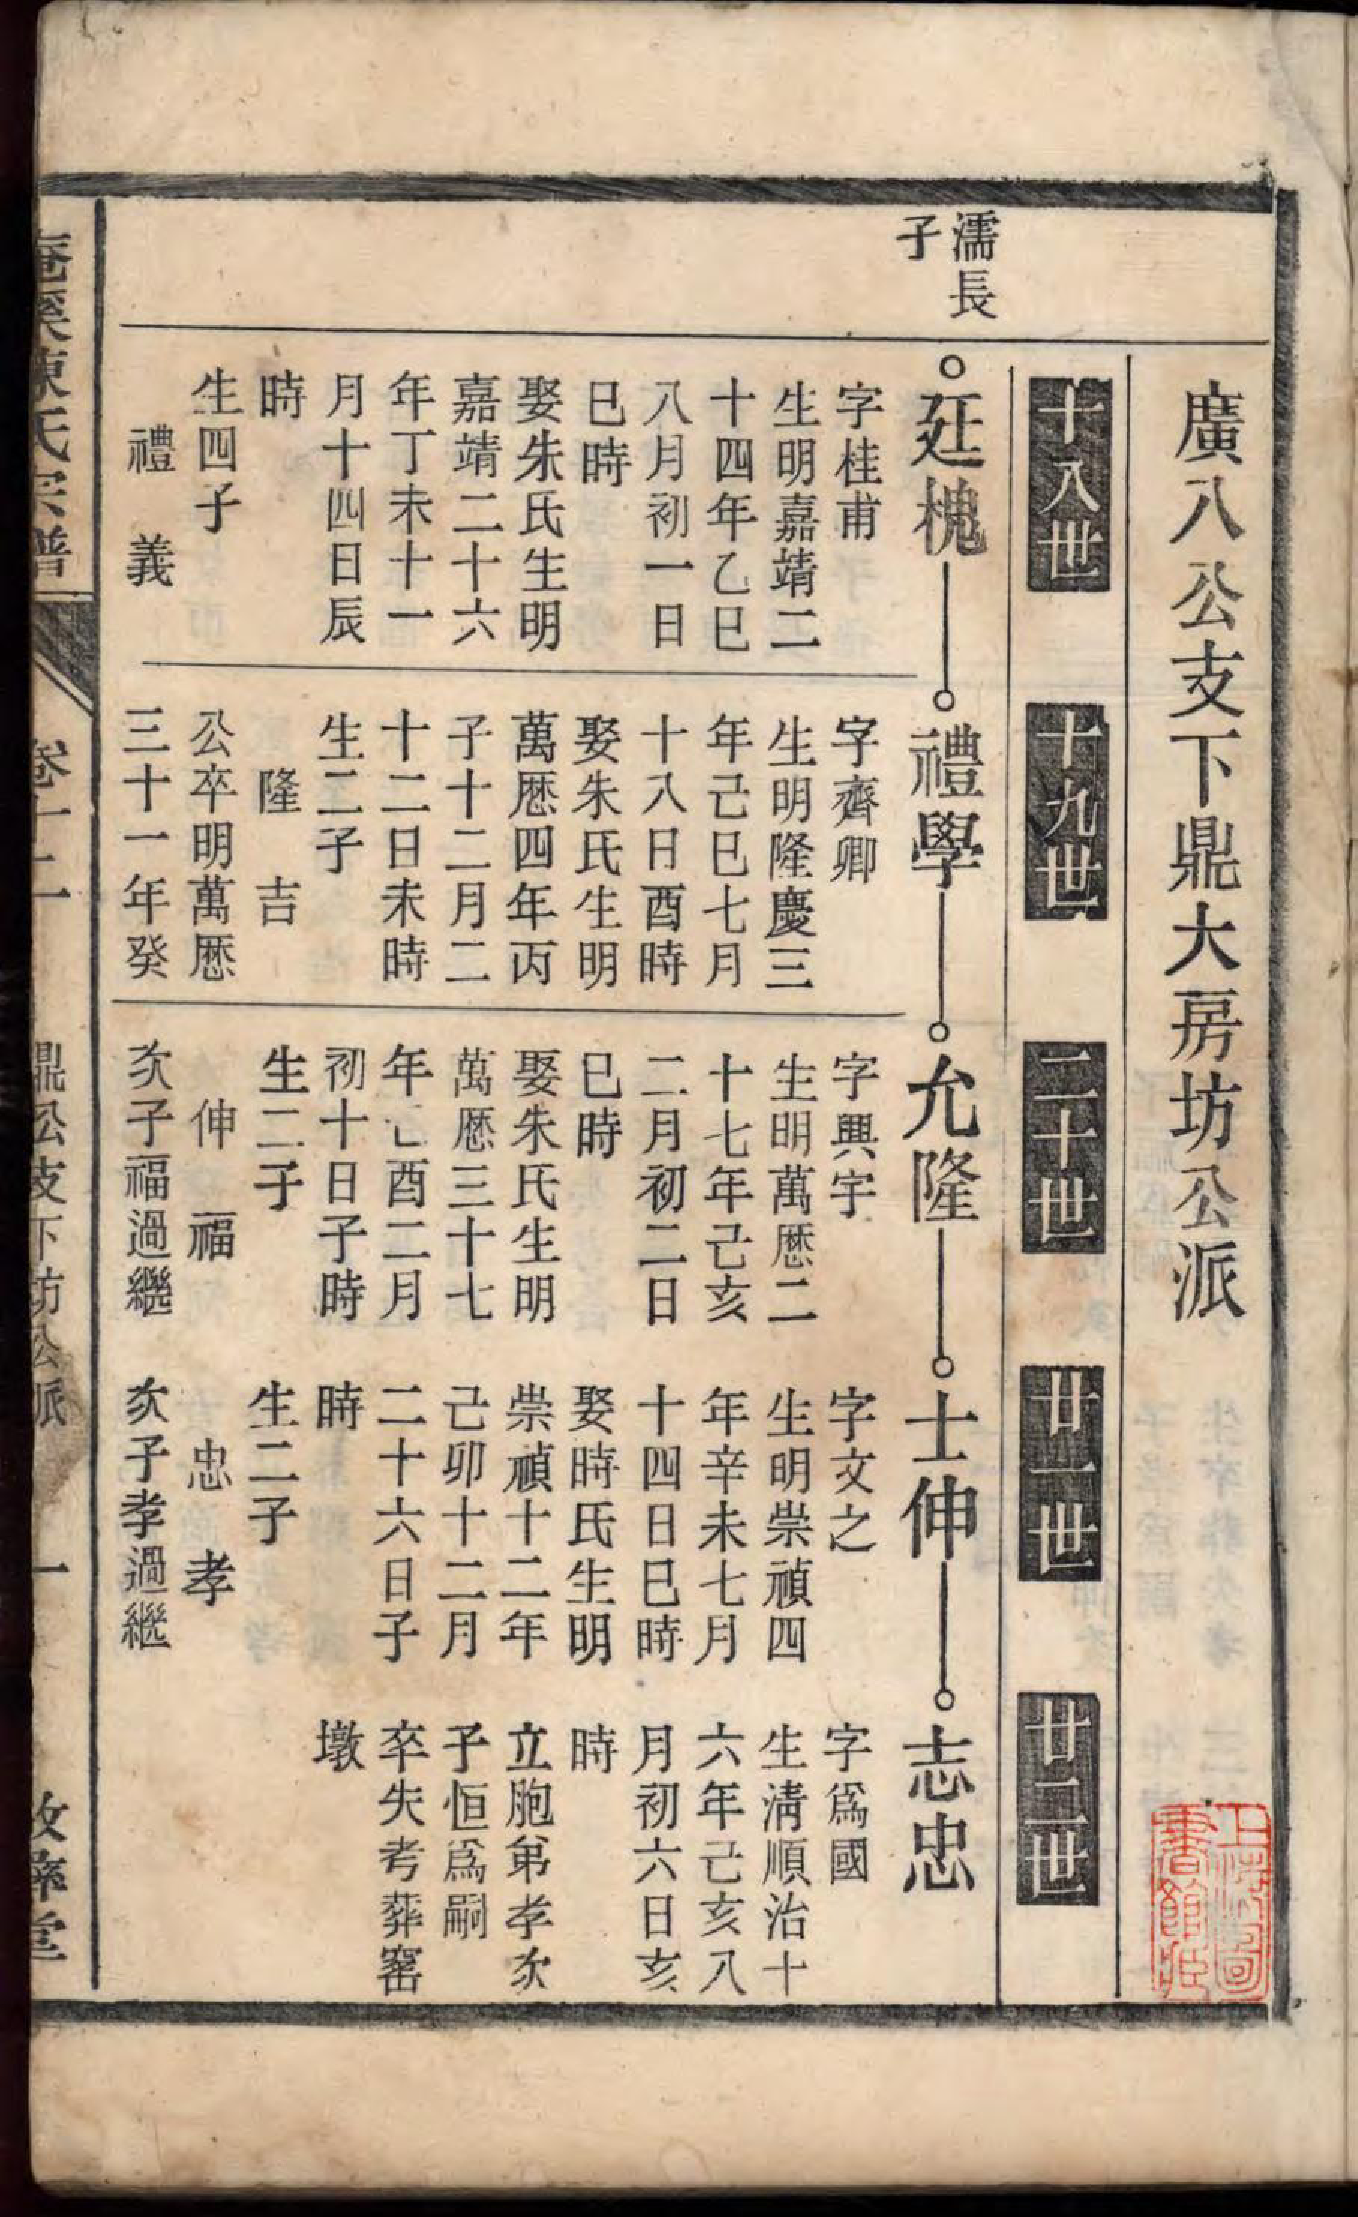 廣八公支下鼎大房坊公派
十八世
十九世
二十世
廿一世
廿二世
濡長
子
廷槐
字桂甫
生明嘉靖二
十四年乙巳
八月初一日
巳時
娶朱氏生明
嘉靖二十六
年丁未十一
月十四日辰
時
生四子
禮 義
禮學
字齊卿
生明隆慶三
年己巳七月
十八日酉時
娶朱氏生明
萬厯四年丙
子十二月二
十二日未時
生二子
隆 吉
公卒明萬厯
三十一年癸
允隆
字興宇
生明萬厯二
十七年己亥
二月初二日
巳時
娶朱氏生明
萬厯三十七
年乙酉二月
初十日子時
生二子
伸 福
次子福過繼
士伸
字文之
生明崇禎四
年辛未七月
十四日巳時
娶時氏生明
崇禎十二年
己卯十二月
二十六日子
時
生二子
忠 孝
次子孝過繼
志忠
字爲國
生淸順治十
六年己亥八
月初六日亥
時
立胞弟孝次
子恒爲嗣
卒失考葬窑
墩
陳氏宗譜
卷十二
鼎公支下坊公派
一
敦彝堂
上海圖
書館藏